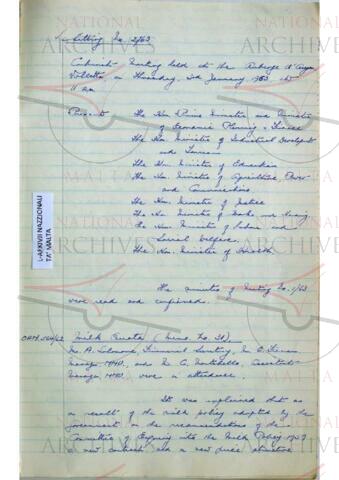 Sitting No. 2/63
Cabinet Meeting held at the Auberge d'Aragon
Valletta, on Thursday, 3rd January, 1963 at
11 a.m.
Present: The Hon. Prime Minister and Minister
of Economic Planning & Finance
The Hon. Minister of Industrial Development
and Tourism
The Hon. Minister of Education
The Hon. Minister of Agriculture, Power
and Communications
The Hon. Minister of Justice
The Hon. Minister of Works and Housing
The Hon. Minister of Labour and
Social Welfare
The Hon. Minister of Health
L-ARKIVJI NAZZJONALI
TA' MALTA
The minutes of Meeting No. 1/63
were read and confirmed.
OPM. 564/62 Milk Quota (Memo. No. 31).
Mr. A. Financial Secretary, Mr. E.
Manager, MMU, and Mr. C. Assistant
Manager, MMU were in attendance.
It was explained that as
a result of the milk policy adopted by the
government on the recommendations of the
Committee of Enquiry into the Milk Policy
a new contract and a new price structure
NATIONAL
ARCHIVES
MALTA